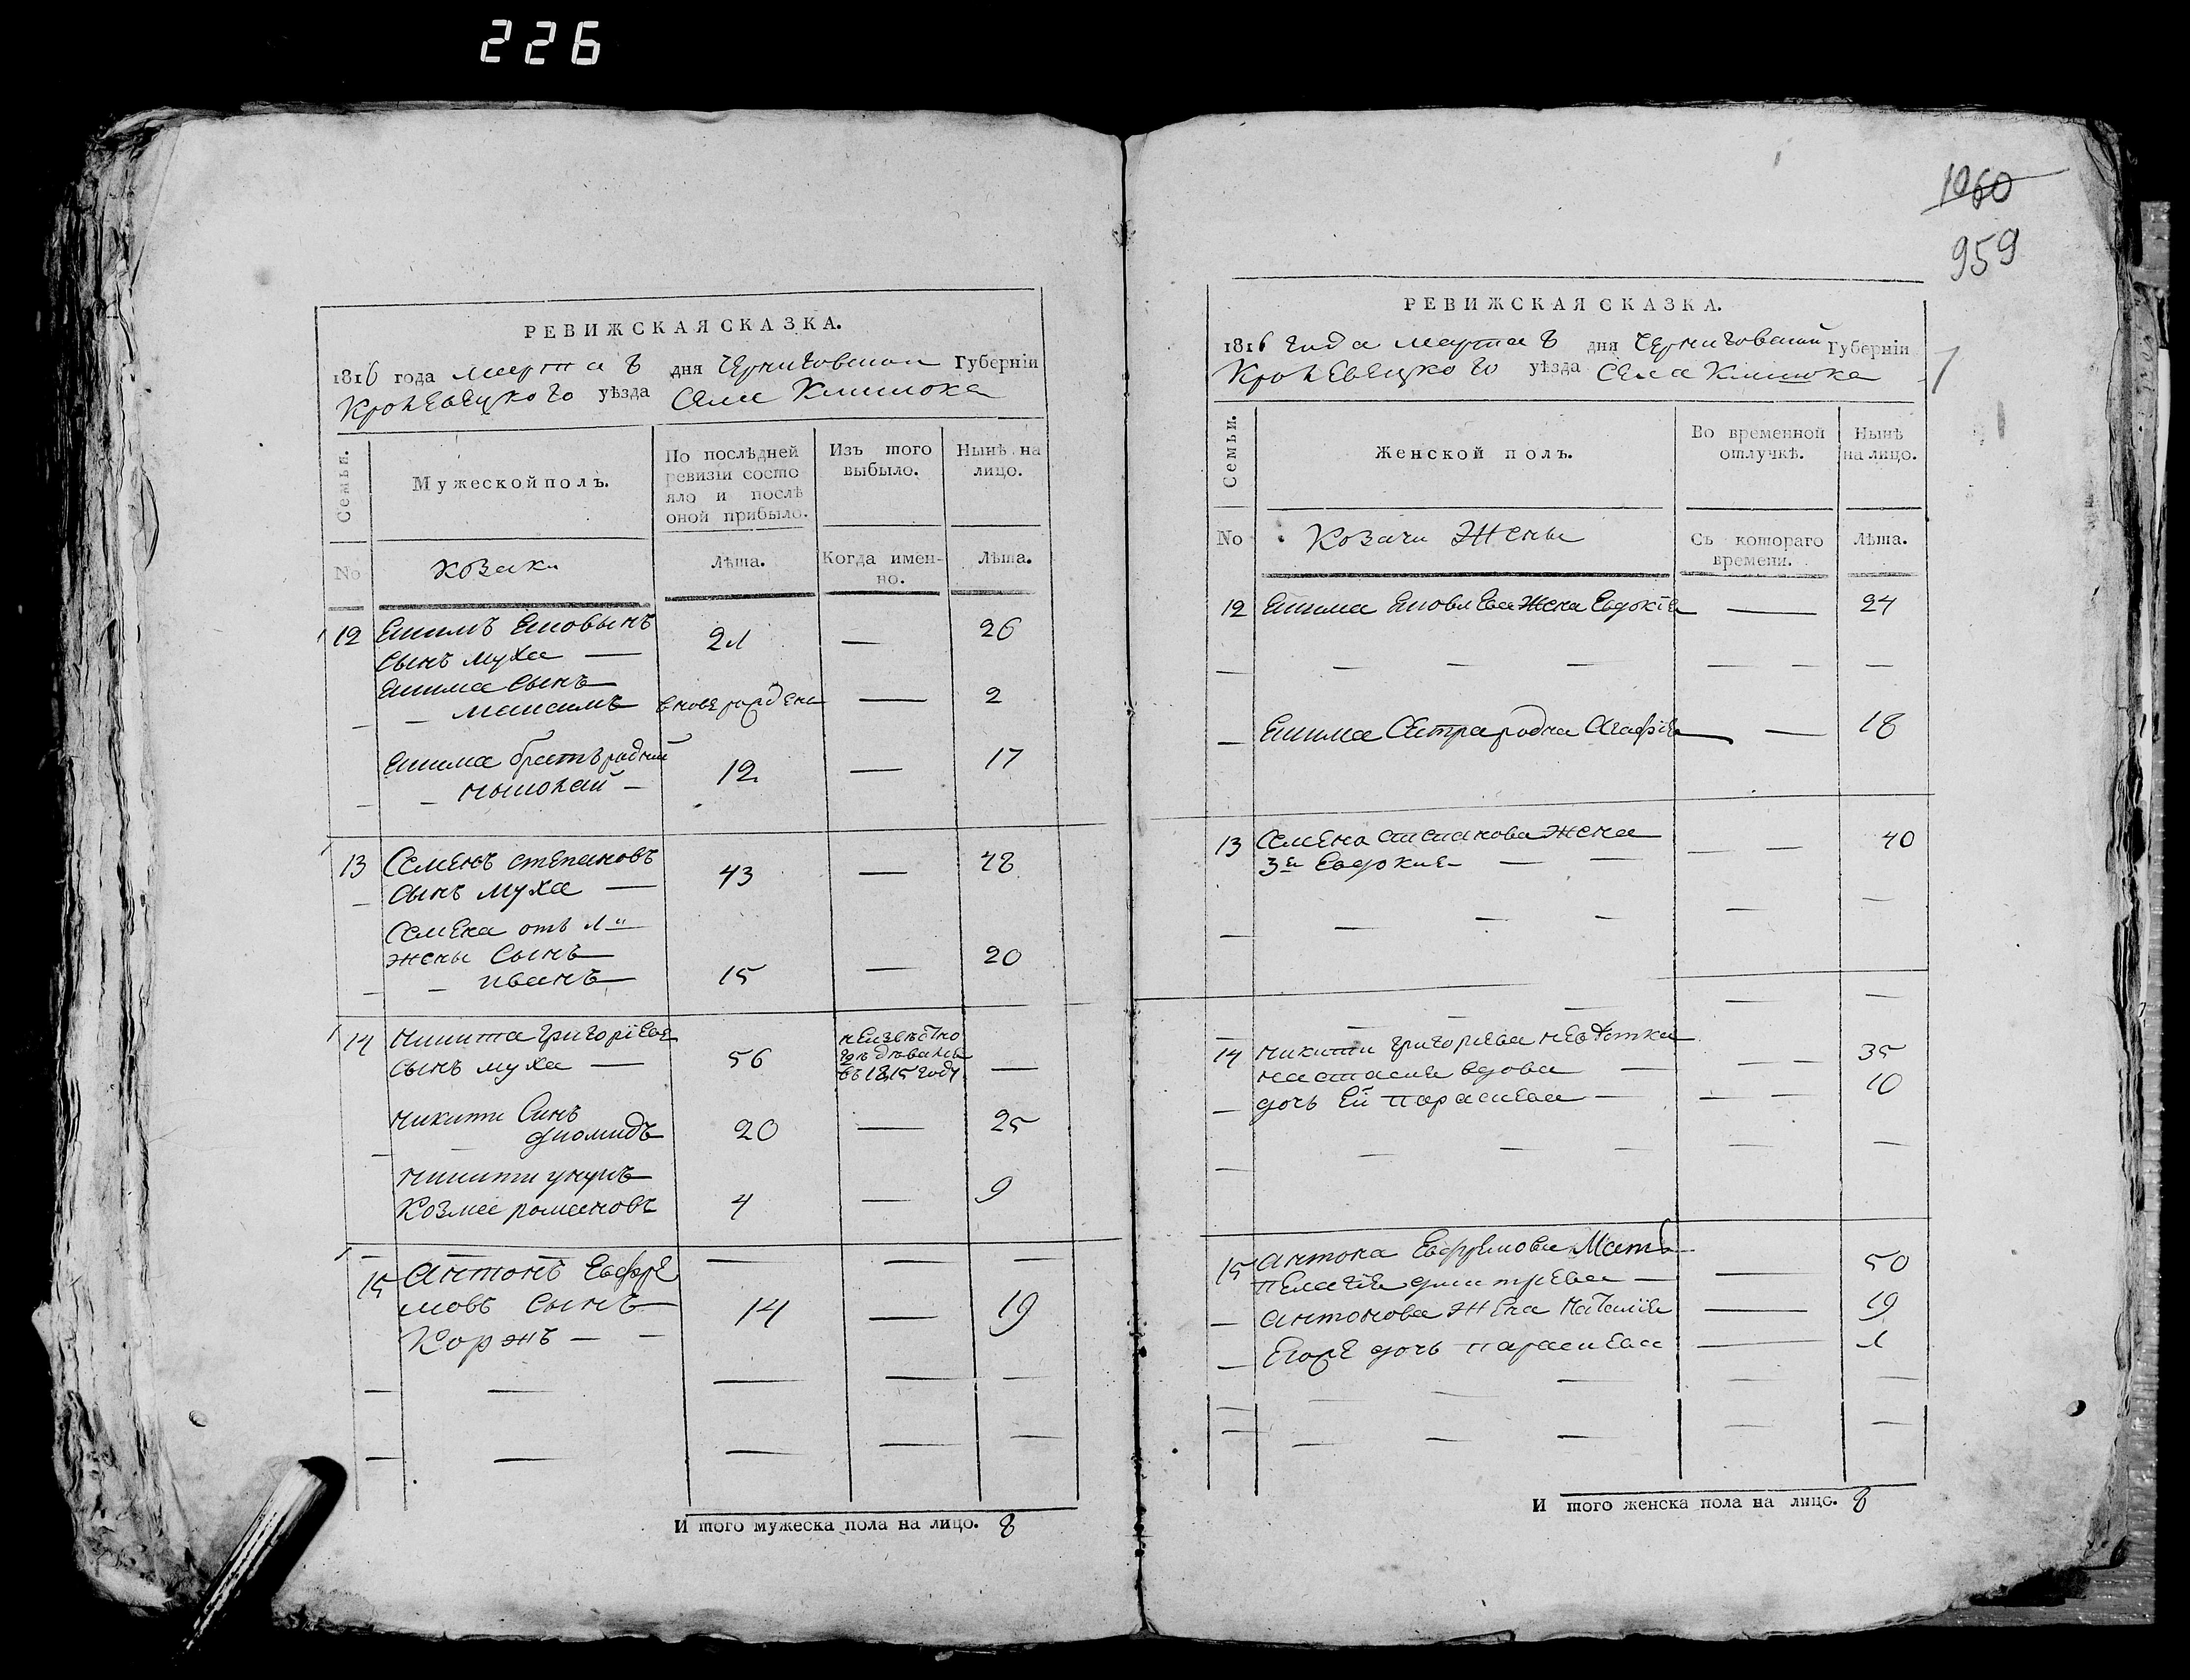 226
1060
959
РЕВИЖСКАЯ СКАЗКА.
1816 года марта 6 дня Черниговской Губерніи
Кролевецкого уѣзда Села Клишока
Семьи.
Мужеской полъ.
По послѣдней ревизіи состо
яло и послѣ
оной прибыло.
Изъ того выбыло.
Нынѣ на лицо.
No
козаки
Лѣта.
Когда имен-
но.
Лѣта.
12 сынъ муха — 21 — 26
сынъ
— — максимъ вновь рожденъ — 2
братъ родний
— — 12 — 17
13 Семенъ степановъ
— сынъ муха — 43 — 48
Семена отъ 1й
жены сынъ
— — иванъ — 15 — 20
14 никита григоріевъ
сынъ муха — 56 неизвѣстно
въ 1815 году —
никити синъ
— — диомидъ 20 — 25
никити унукъ
Козма романовъ 4 — 9
— — — —
15 Антонъ Евфре
мовъ сынъ 14 — 19
Коржъ — —
И того мужеска пола на лицо. 8
РЕВИЖСКАЯ СКАЗКА.
1816 года марта 6 дня Черниговской Губерніи
Кролевецкого уѣзда Села Клишока
Семьи.
Женской полъ.
Во временной
отлучкѣ.
Нынѣ
на лицо.
No
Козачи Жены
Съ котораго
времени.
Лѣта.
12 Жена Евдокія — 24
— — — — — — —
— сестра родна Агафія — — 18
13 Семена степанова жена — — 40
3я Евдокия — —
— — — — — —
— — — — —
14 никити григориева невѣстка — — 35
настасия вдова —
— дочь ей параскева — — — 10
— — — — — —
15 антона Евфремова Мать — 50
пелагія дмитриева —
— антонова жена наталия — 19
— дочь параскева — 1
И того женска пола на лицо. 8